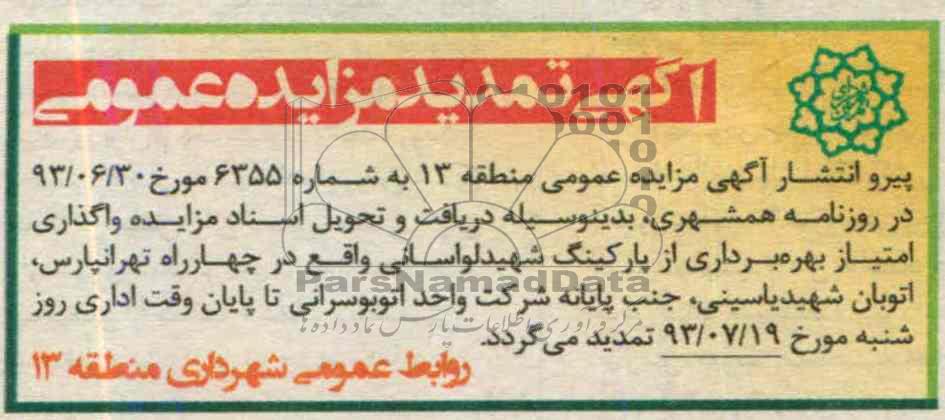 آگهی تمدید مزایده عمومی
پیرو انتشار آگهی مزایده عمومی منطقه ۱۳ به شماره ۶۳۵۵ مورخ ۹۳/۰۶/۳۰
در روزنامه همشهری، بدینوسیله دریافت و تحویل اسناد مزایده واگذاری
امتیاز بهره‌برداری از پارکینگ شهیدلواسانی واقع در چهارراه تهرانپارس،
ParsNamadData
اتوبان شهیدیاسینی، جنب پایانه شرکت واحد اتوبوسرانی تا پایان وقت اداری روز
مرکز فرآوری اطلاعات پارس نماد داده ها
شنبه مورخ ۹۳/۰۷/۱۹ تمدید می‌گردد.
روابط عمومی شهرداری منطقه ۱۳